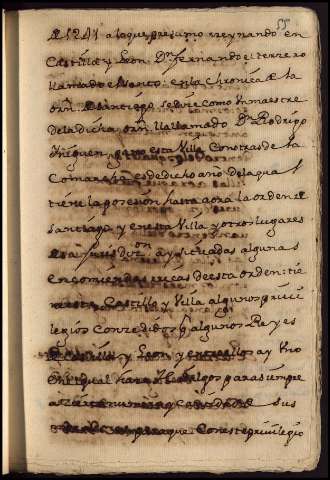 55
1241 alo que presumo rreynando en
Castilla y Leon Dn fernando el terzero
llamado el santo: en la Chronica de la
orn de santiago se dize como un maestre
de la dicha orn llamado Dn Rodrigo
Iñiguez gano esta Villa con otras de la
Comarca es de dicho año de la qual
tiene la posesion hasta aora la orden de
Santiago y en esta Villa y otros lugares
de su juris don ay situadas algunas
encomiendas ricas de esta orden: tie
ne este Castillo y Villa algunos privi
legios Conzedidos por algunos Reyes
de Castilla y Leon y entre ellos ay Vno
en el qual hidalgos para siempre
a cierto numero de sus
para que con este privilegio